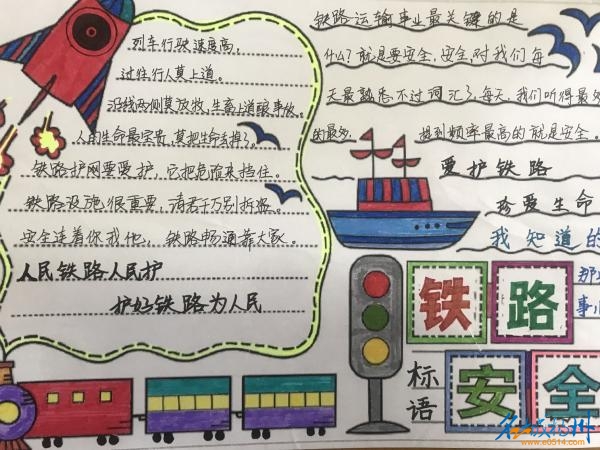 列车行驶速度高,
过往行人莫上道。
沿线两侧莫放牧,生畜上道酿事故。
人的生命最宝贵,莫把生命丢掉了。
铁路护网要爱护,它把危险来挡住。
铁路设施很重要,诸君千万别拆掉。
安全连着你我他,铁路畅通靠大家。
人民铁路人民护
护好铁路为人民
铁路运输事业最关键的是
什么?就是要安全,安全,对我们每
天最熟悉不过词汇了,每天,我们听得最多
的最多, 提到频率最高的就是安全。
爱护铁路
珍爱生命
我知道的
铁路
那
事
标语
安全
www.e0514.com